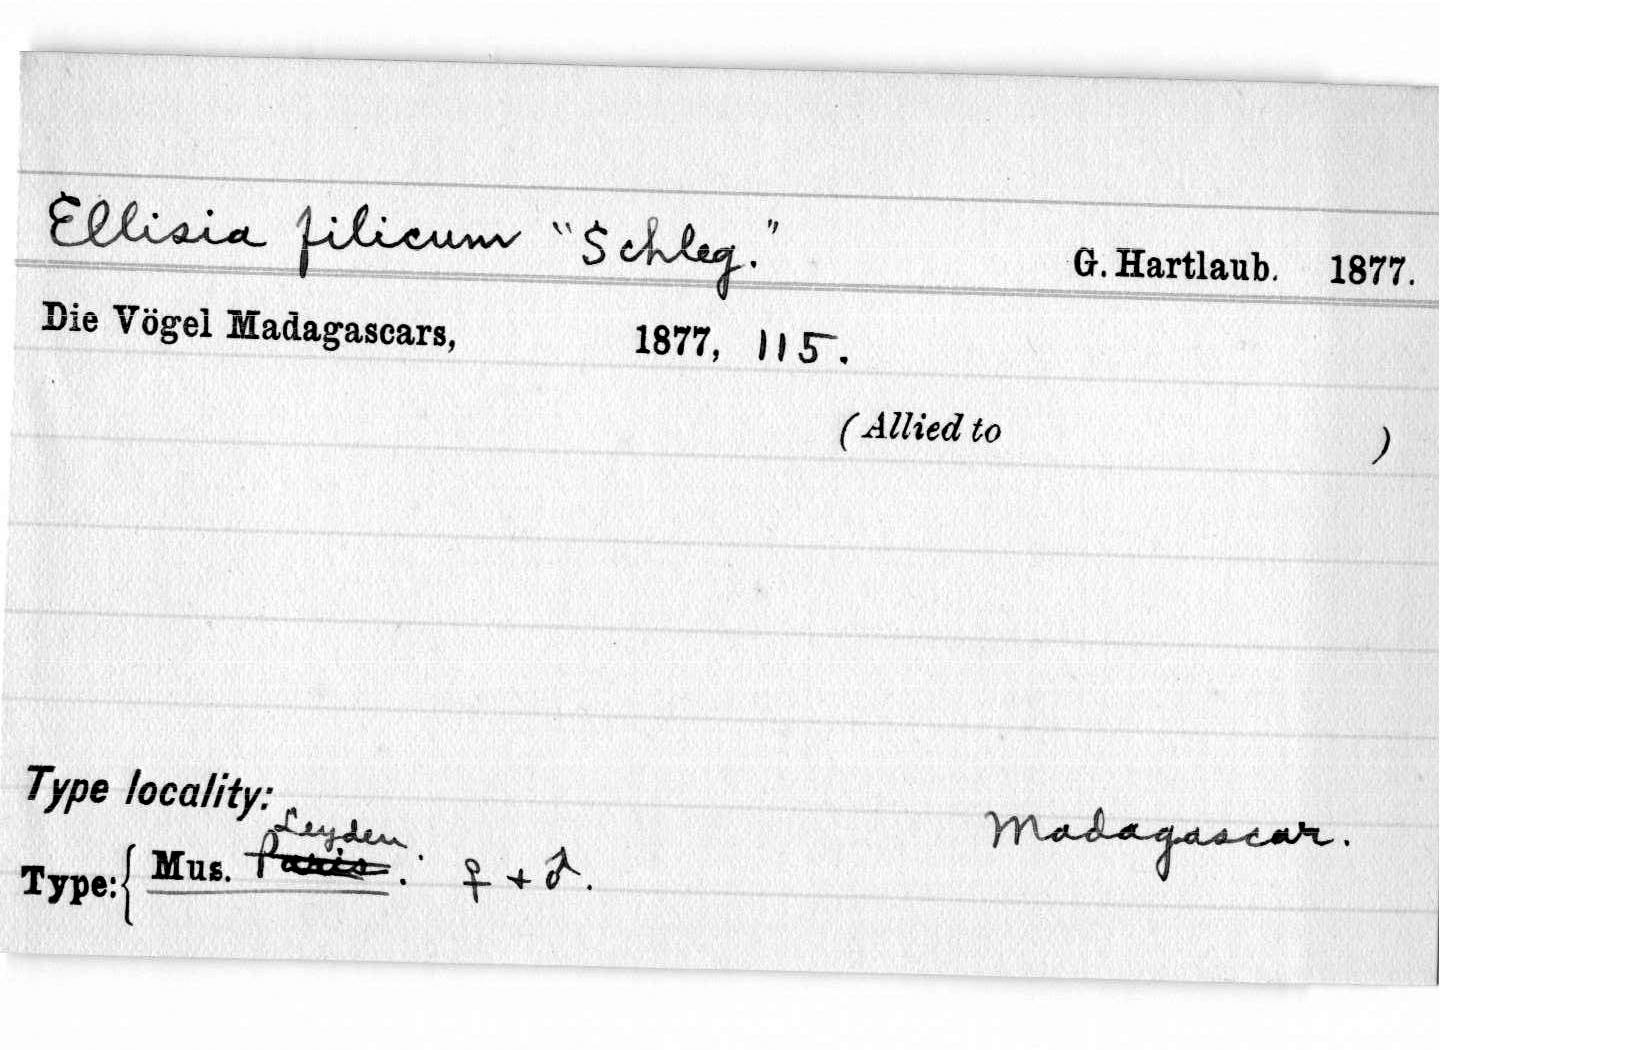 Ellisia filicum "Schleg." G. Hartlaub. 1877.
Die Vögel Madagascars, 1877, 115.
(Allied to )
Type locality:
Madagascar.
Leyden.
Type: { Mus. Paris. ♀ + ♂.